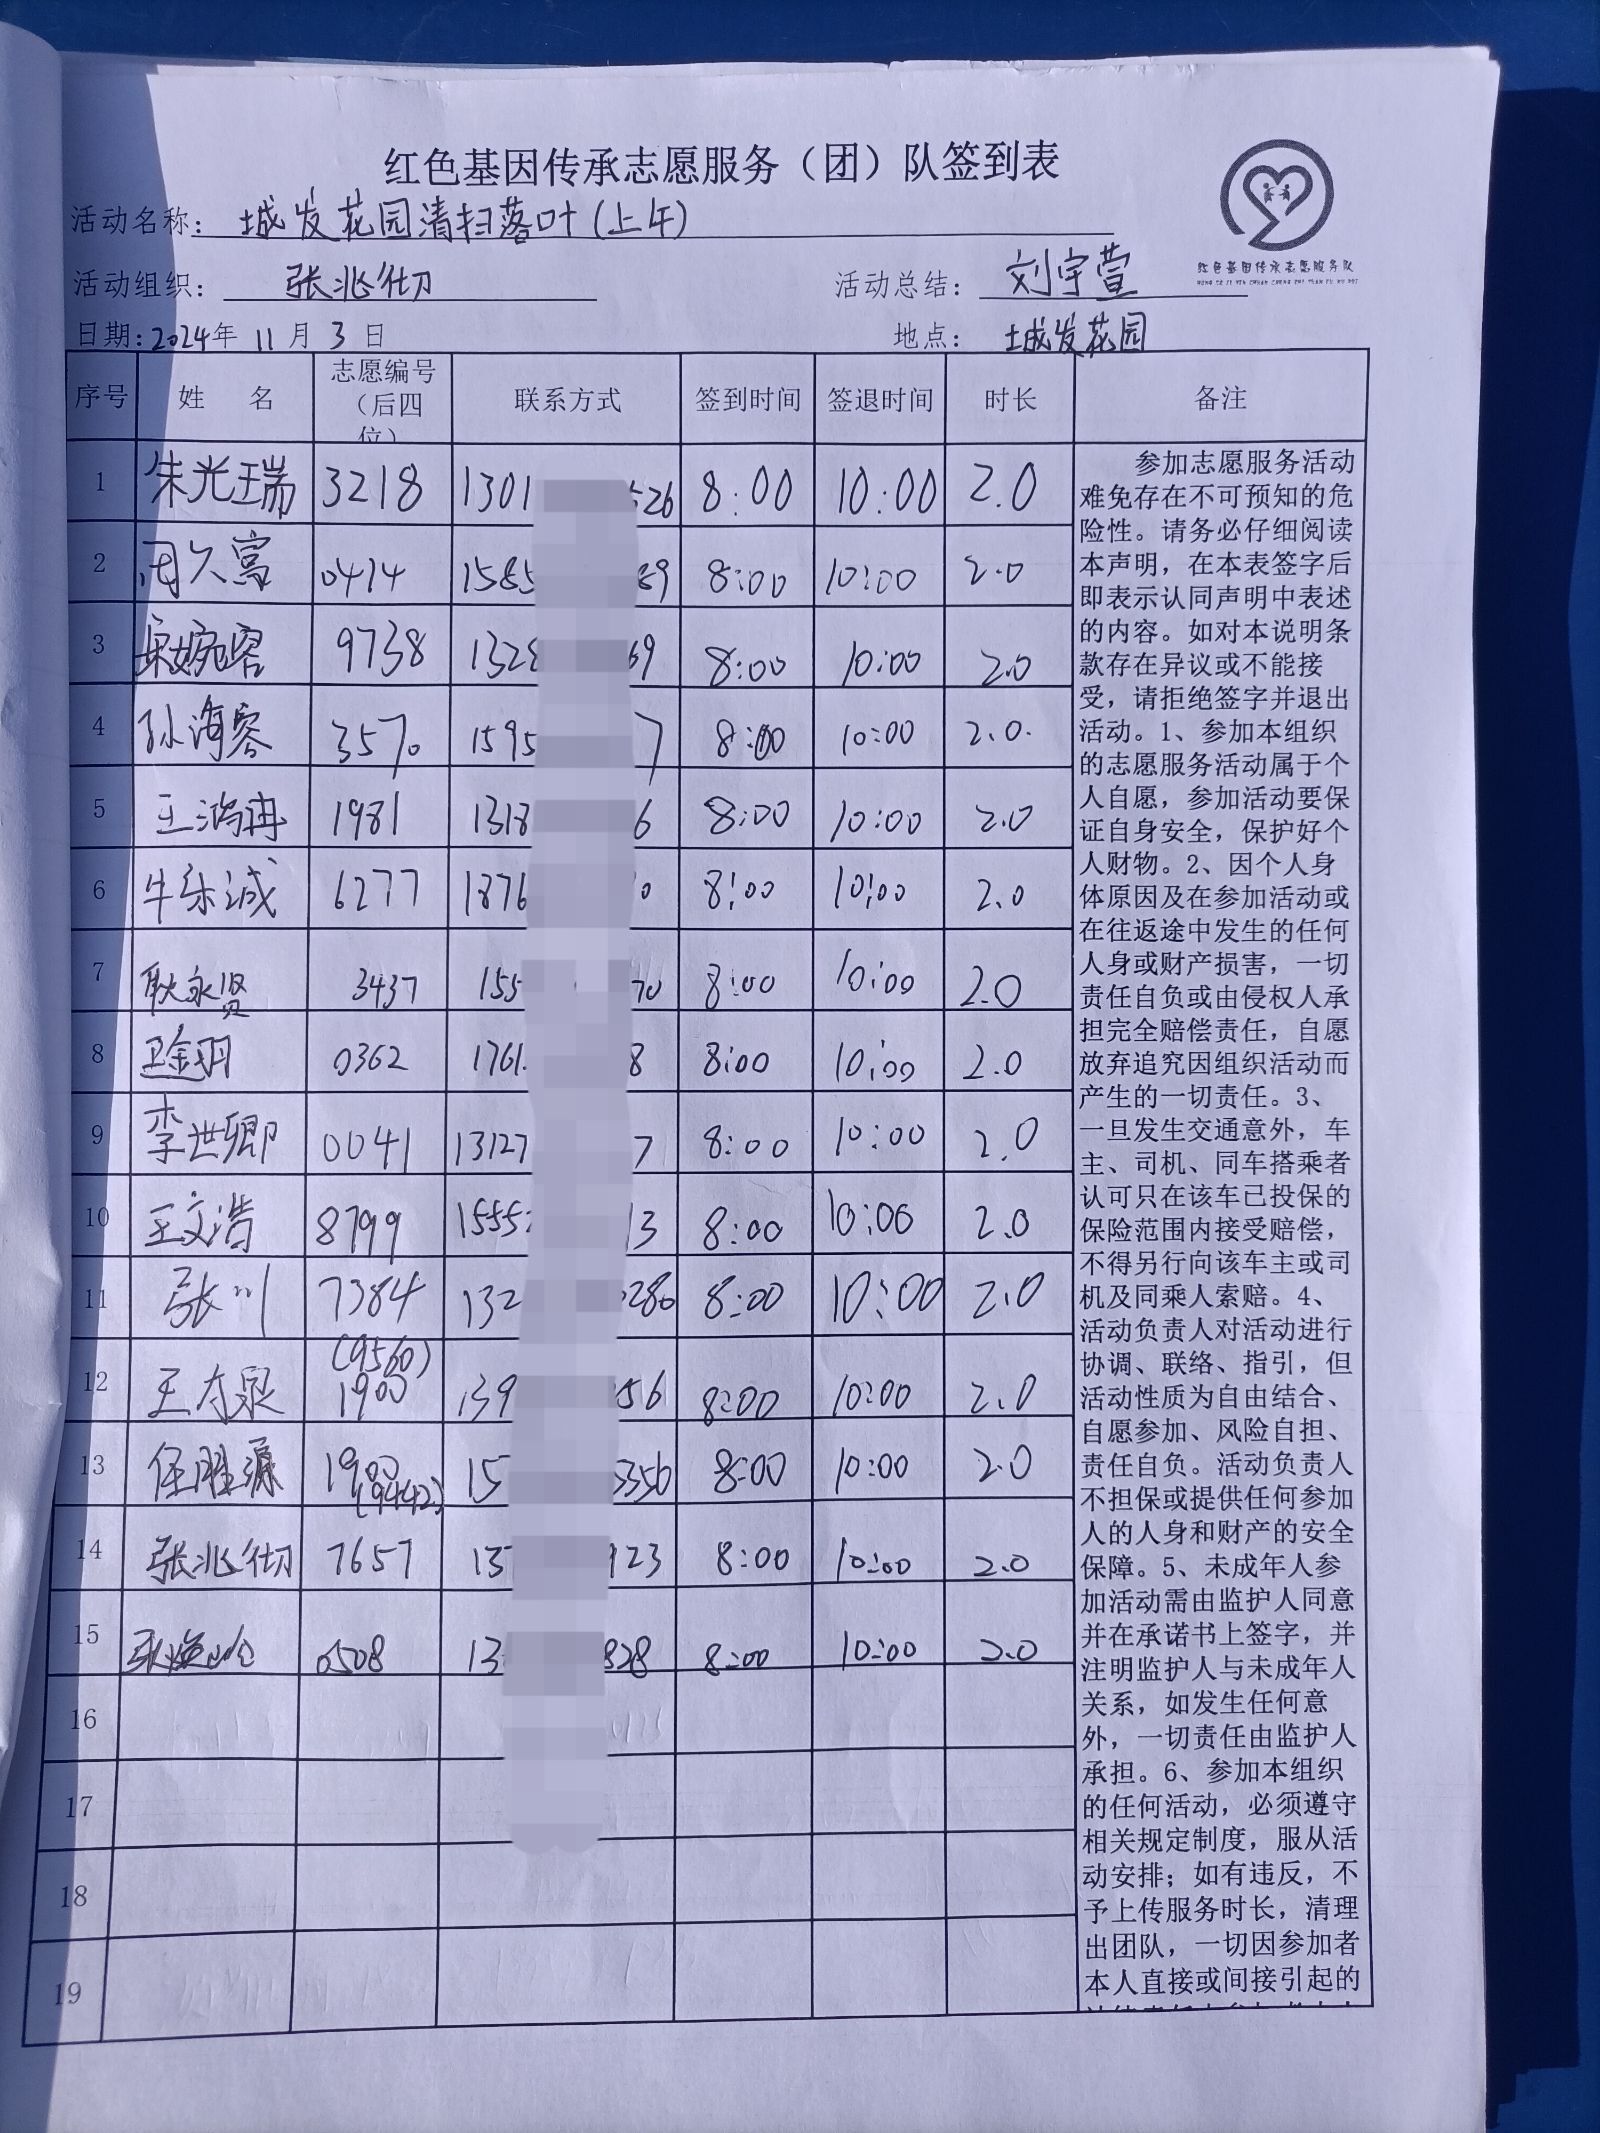 红色基因传承志愿服务（团）队签到表
活动名称：城发花园清扫落叶(上午)
红色基因传承志愿服务队
活动组织：张兆彻 活动总结：刘宇萱
日期：2024年 11 月 3 日 地点：城发花园
序号 姓 名 志愿编号（后四位） 联系方式 签到时间 签退时间 时长 备注
1 朱光瑞 3218 1301 526 8:00 10:00 2.0
2 周久富 0414 1585 89 8:00 10:00 2.0
3 宋婉容 9738 1328 69 8:00 10:00 2.0
4 孙海蓉 3570 1595 7 8:00 10:00 2.0.
5 王鸿冉 1981 1318 6 8:00 10:00 2.0
6 牛乐诚 6277 1876 0 8:00 10:00 2.0
7 耿永贤 3437 155 70 8:00 10:00 2.0
8 0362 1761 8 8:00 10:00 2.0
9 李世卿 0041 13127 7 8:00 10:00 2.0
10 王文浩 8799 1555 13 8:00 10:00 2.0
11 张川 7384 132 280 8:00 10:00 2.0
12 王 泉 (9560) 1900 139 56 8:00 10:00 2.0
13 任胜源 1900 (9442) 15 356 8:00 10:00 2.0
14 张兆彻 7657 13 923 8:00 10:00 2.0
15 0508 13 828 8:00 10:00 2.0
16
17
18
19
参加志愿服务活动
难免存在不可预知的危
险性。请务必仔细阅读
本声明，在本表签字后
即表示认同声明中表述
的内容。如对本说明条
款存在异议或不能接
受，请拒绝签字并退出
活动。1、参加本组织
的志愿服务活动属于个
人自愿，参加活动要保
证自身安全，保护好个
人财物。2、因个人身
体原因及在参加活动或
在往返途中发生的任何
人身或财产损害，一切
责任自负或由侵权人承
担完全赔偿责任，自愿
放弃追究因组织活动而
产生的一切责任。3、
一旦发生交通意外，车
主、司机、同车搭乘者
认可只在该车已投保的
保险范围内接受赔偿，
不得另行向该车主或司
机及同乘人索赔。4、
活动负责人对活动进行
协调、联络、指引，但
活动性质为自由结合、
自愿参加、风险自担、
责任自负。活动负责人
不担保或提供任何参加
人的人身和财产的安全
保障。5、未成年人参
加活动需由监护人同意
并在承诺书上签字，并
注明监护人与未成年人
关系，如发生任何意
外，一切责任由监护人
承担。6、参加本组织
的任何活动，必须遵守
相关规定制度，服从活
动安排；如有违反，不
予上传服务时长，清理
出团队，一切因参加者
本人直接或间接引起的